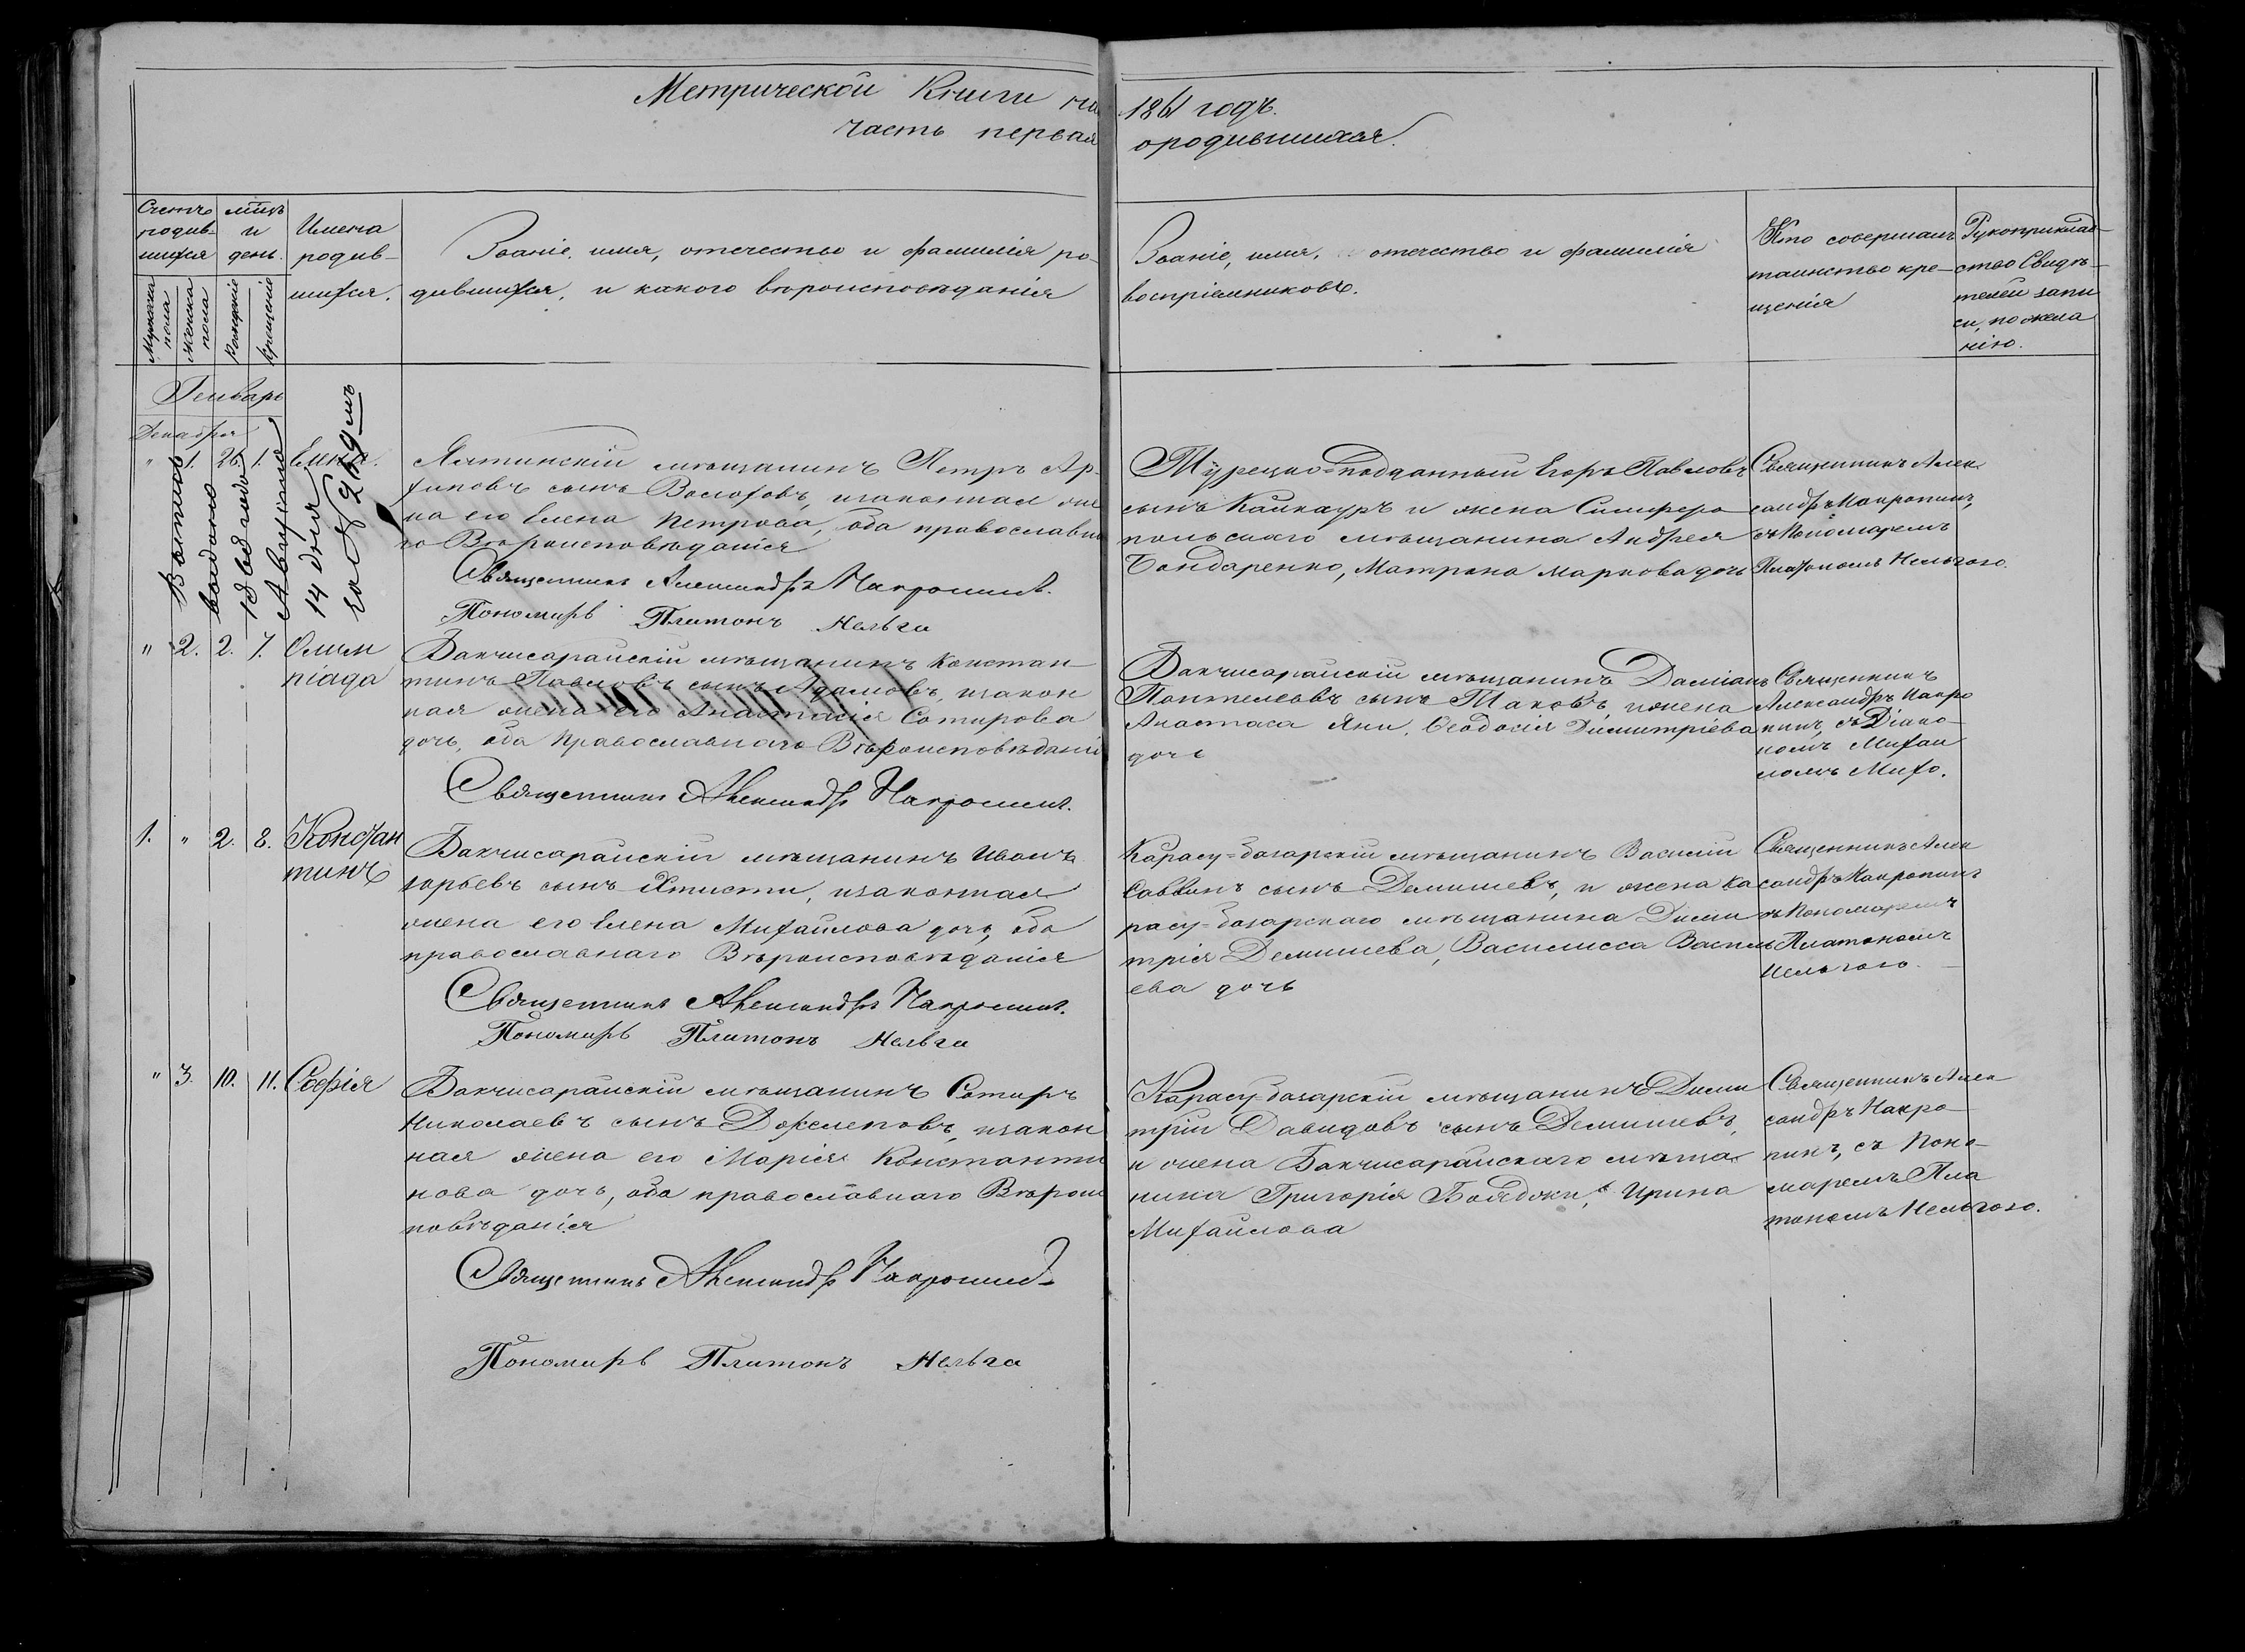 Метрической Книги на 1861 годъ.
часть первая ородившихся.
Счетъ родив-шихся
мѣцъ и день.
Имена родив-шихся.
Званіе, имя, отечество и фамилія ро-
дившихся, и какого вѣроисповѣданія
Званіе, имя, отечество и фамилія
воспріемниковъ.
Кто совершалъ
таинство кре-
щенія
Рукоприклад-
ство Свидѣ-
телей запи
си, по жела
нію.
Мужска пола
Женска пола
Рожденіе
Крещеніе
Генварь
Декабря
" 1. 26. 1. Елена.
14 дня
за № 219мъ
Ялтинскій мѣщанинъ Петръ Ар-
хиповъ сынъ Волоховъ, изаконная же
на его Елена Петрова, оба православна
го Вѣроисповѣданія
Священникъ Александръ Накропинъ.
Пономарь Платонъ Нельга
Турецко=подданный Егоръ Павловъ
сынъ Каикауръ и жена Симферо
польскаго мѣщанина Андрея
Бондаренко, Матрона Маркова дочь
Священникъ Алек
сандръ Накропинъ,
съ Пономаремъ
Платономъ Нельгою.
" 2. 2. 7. Олим
піада
Бакчисарайскій мѣщанинъ Констан
тинъ Павловъ сынъ Адамовъ, изакон
ная жена его Анастасія Сотирова
дочь, оба Православнаго Вѣроисповѣданія
Священникъ Александръ Накропинъ.
Бакчисарайскій мѣщанинъ Даміанъ
Пантелеевъ сынъ Таковъ, ижена
Анастаса Яни, Ѳеодосія Димитріева
дочь
Священникъ
Александръ Накро
пинъ, съ Діако-
номъ Михаи
ломъ Михо.
1. " 2. 8. Констан
тинъ
Бакчисарайскій мѣщанинъ Иванъ
зорьевъ сынъ Хтисти, изаконная
жена его Елена Михайлова дочь, оба
православнаго Вѣроисповѣданія
Священникъ Александръ Накропинъ.
Пономарь Платонъ Нельга
Карасу=базарскій мѣщанинъ Василій
Саввинъ сынъ Демишевъ, и жена Ка
расу=базарскаго мѣщанина Дими
трія Демишева, Василисса Василь
ева дочь
Священникъ Алек
сандръ Накропинъ
съ Пономаремъ
Платономъ
Нельгою.
" 3. 10. 11. Софія
Бакчисарайскій мѣщанинъ Сотиръ
Николаевъ сынъ Джелеповъ, изакон
ная жена его Марія Константи
нова дочь, оба православнаго Вѣрои
повѣданія
Священникъ Александръ Накропинъ
Пономарь Платонъ Нельга
Карасубазарскій мѣщанинъ Дими
трій Давидовъ сынъ Демишевъ,
и жена Бакчисарайскаго мѣща
нина Григорія Бояджи, Ирина
Михайлова
Священникъ Алек
сандръ Накро-
пинъ, съ Поно-
маремъ Пла
тономъ Нельгою.